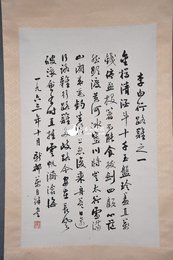 李白行路難之一
金樽清酒斗十千玉盤珍羞直萬
錢停盃投箸不能食拔劍四顧心茫
然欲渡黃河冰塞川將登太行雪滿
山閑來垂釣碧溪上忽復乘舟夢日邊
行路難行路難多歧路今安在長風
破浪會有時直挂雲帆濟滄海
一九六三年十月